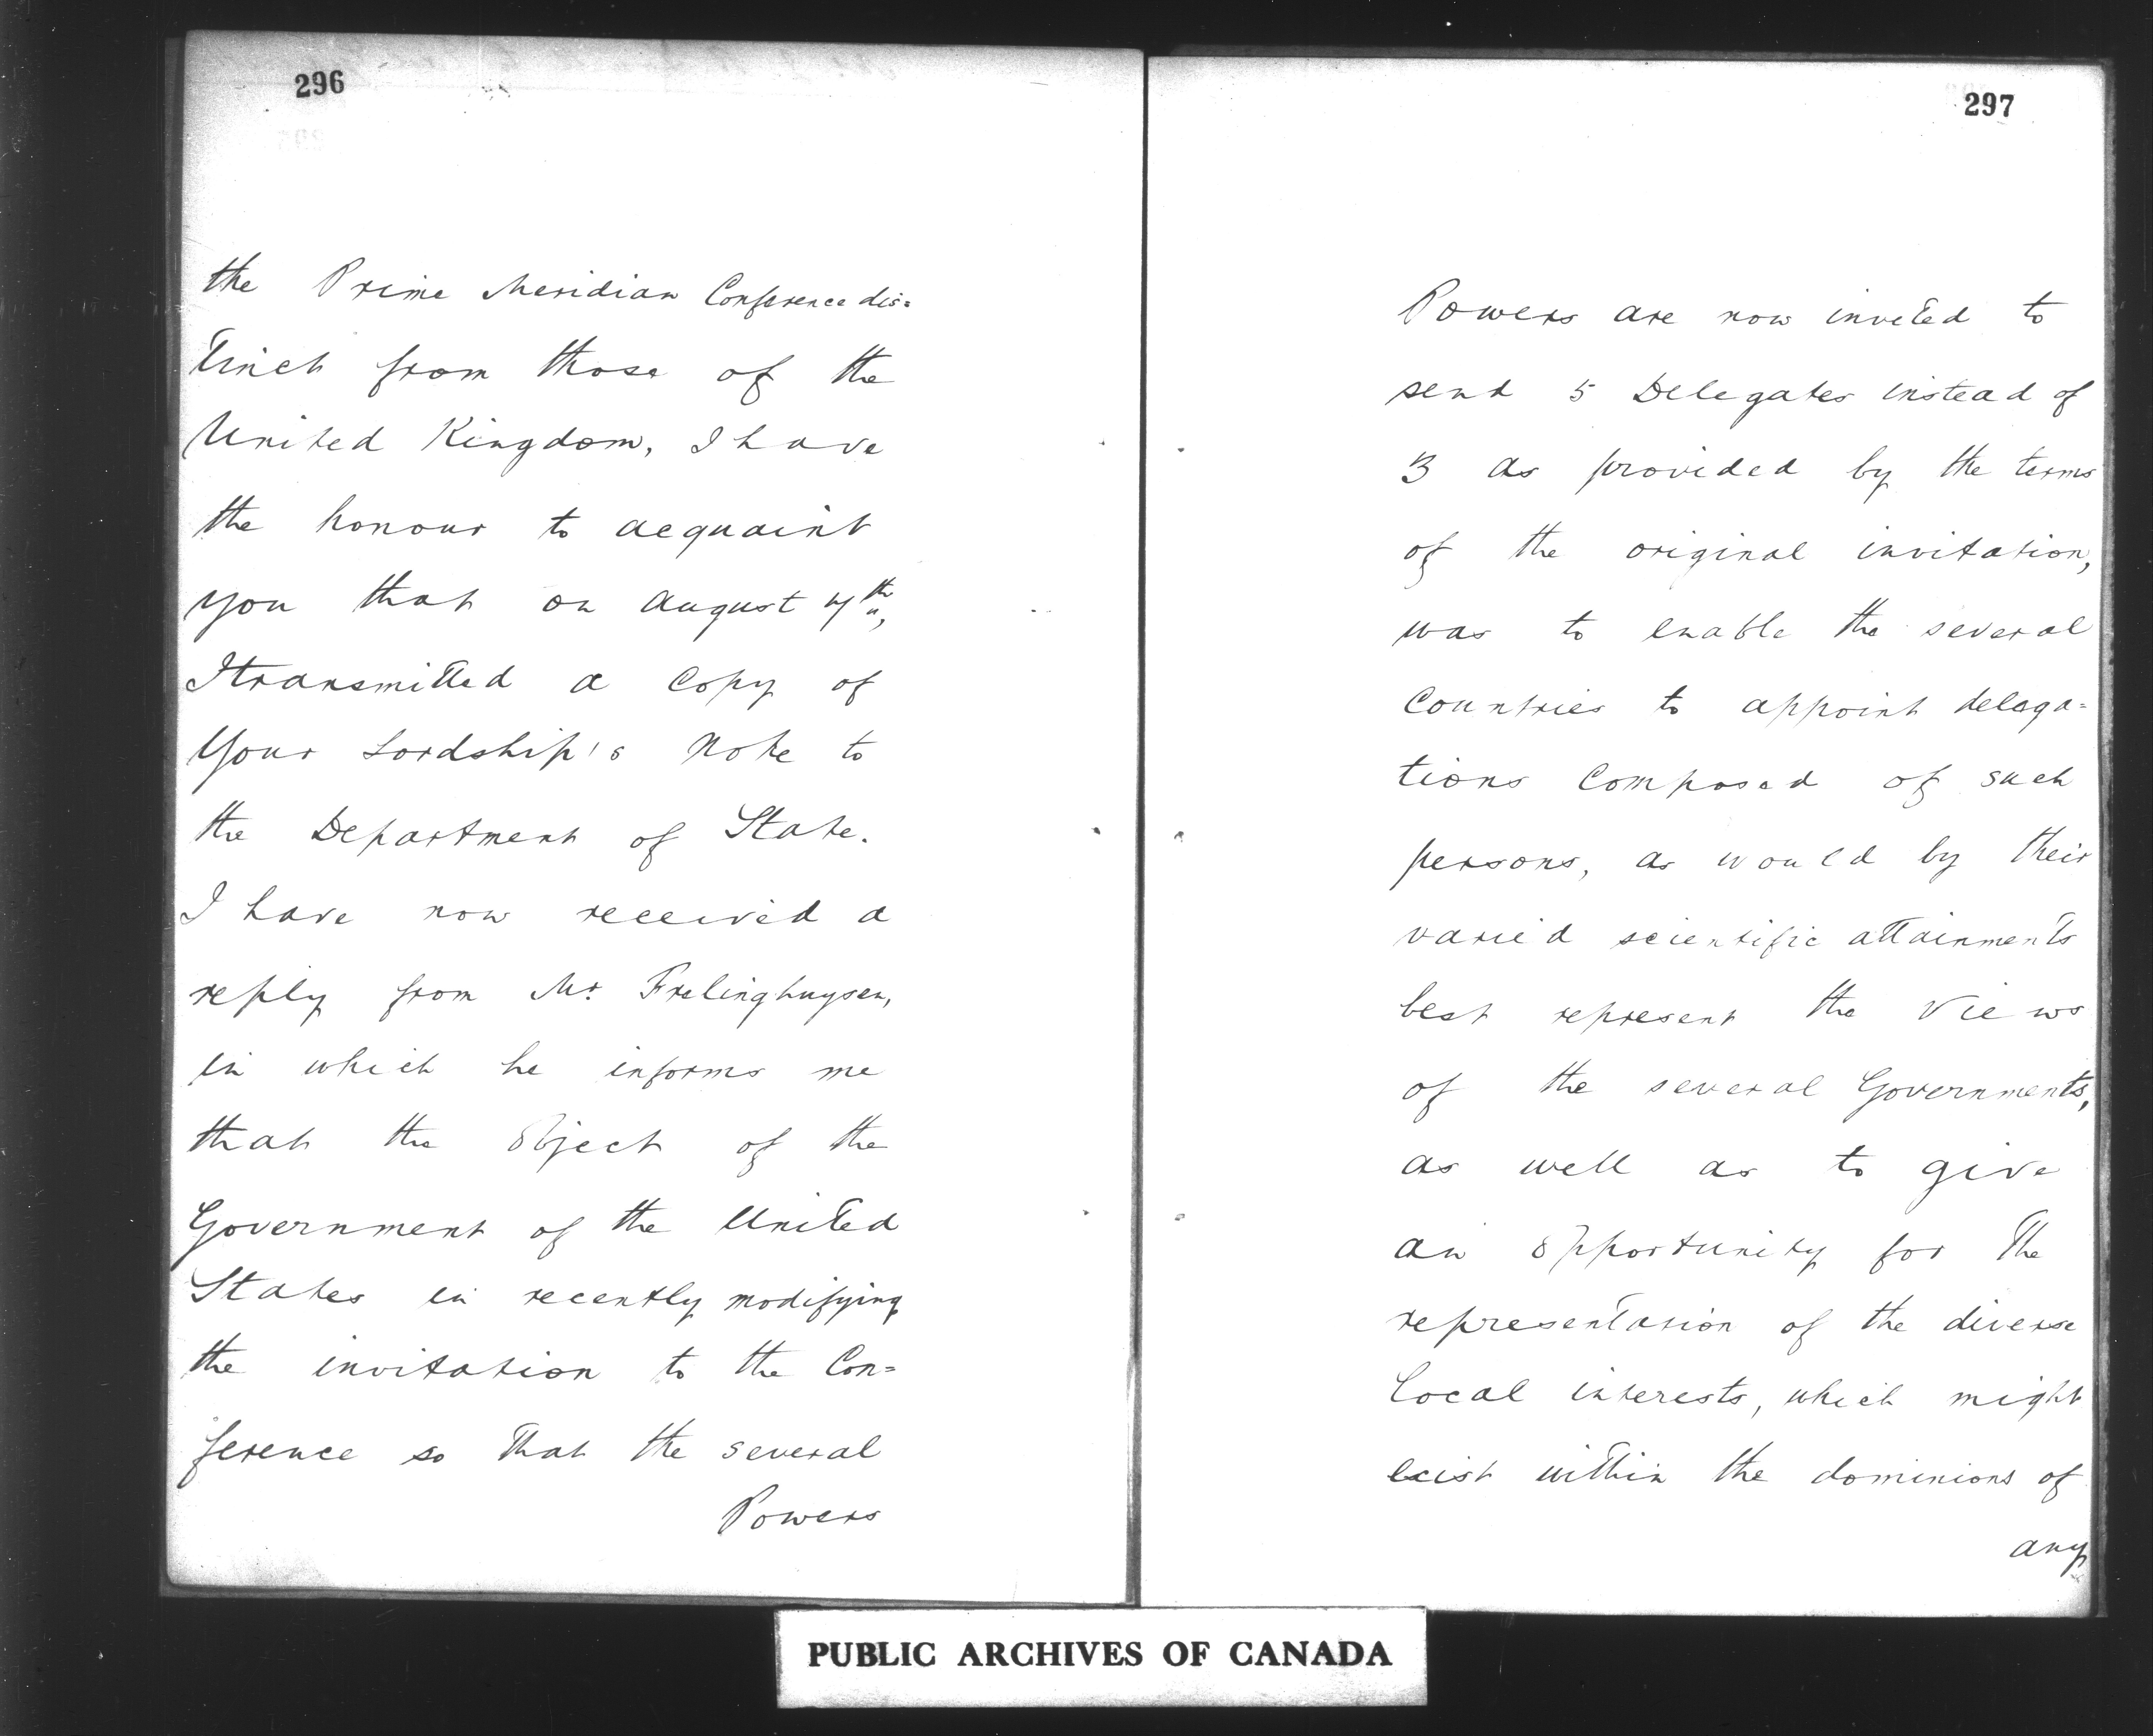 296
the Prime Meridian Conference dis=
tinct from those of the
United Kingdom, I have
the honour to acquaint
you that on August 4th,
I transmitted a Copy of
Your Lordship's Note to
the Department of State.
I have now received a
reply from Mr. Frelinghuysen,
in which he informs me
that the Object of the
Government of the United
States in recently modifying
the invitation to the Con=
ference so that the several
Powers
297
Powers are now invited to
send 5 Delegates instead of
3 as provided by the terms
of the original invitation,
was to enable the several
Countries to appoint delega=
tions Composed of such
persons, as would by their
varied scientific attainments
best represent the Views
of the several Governments,
as well as to give
an Opportunity for the
representation of the diverse
local interests, which might
exist within the dominions of
any
PUBLIC ARCHIVES OF CANADA